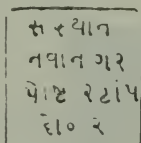 સંસ્થાન
નવાનગર
પોષ્ટ સ્ટાંપ
દો૦ ર